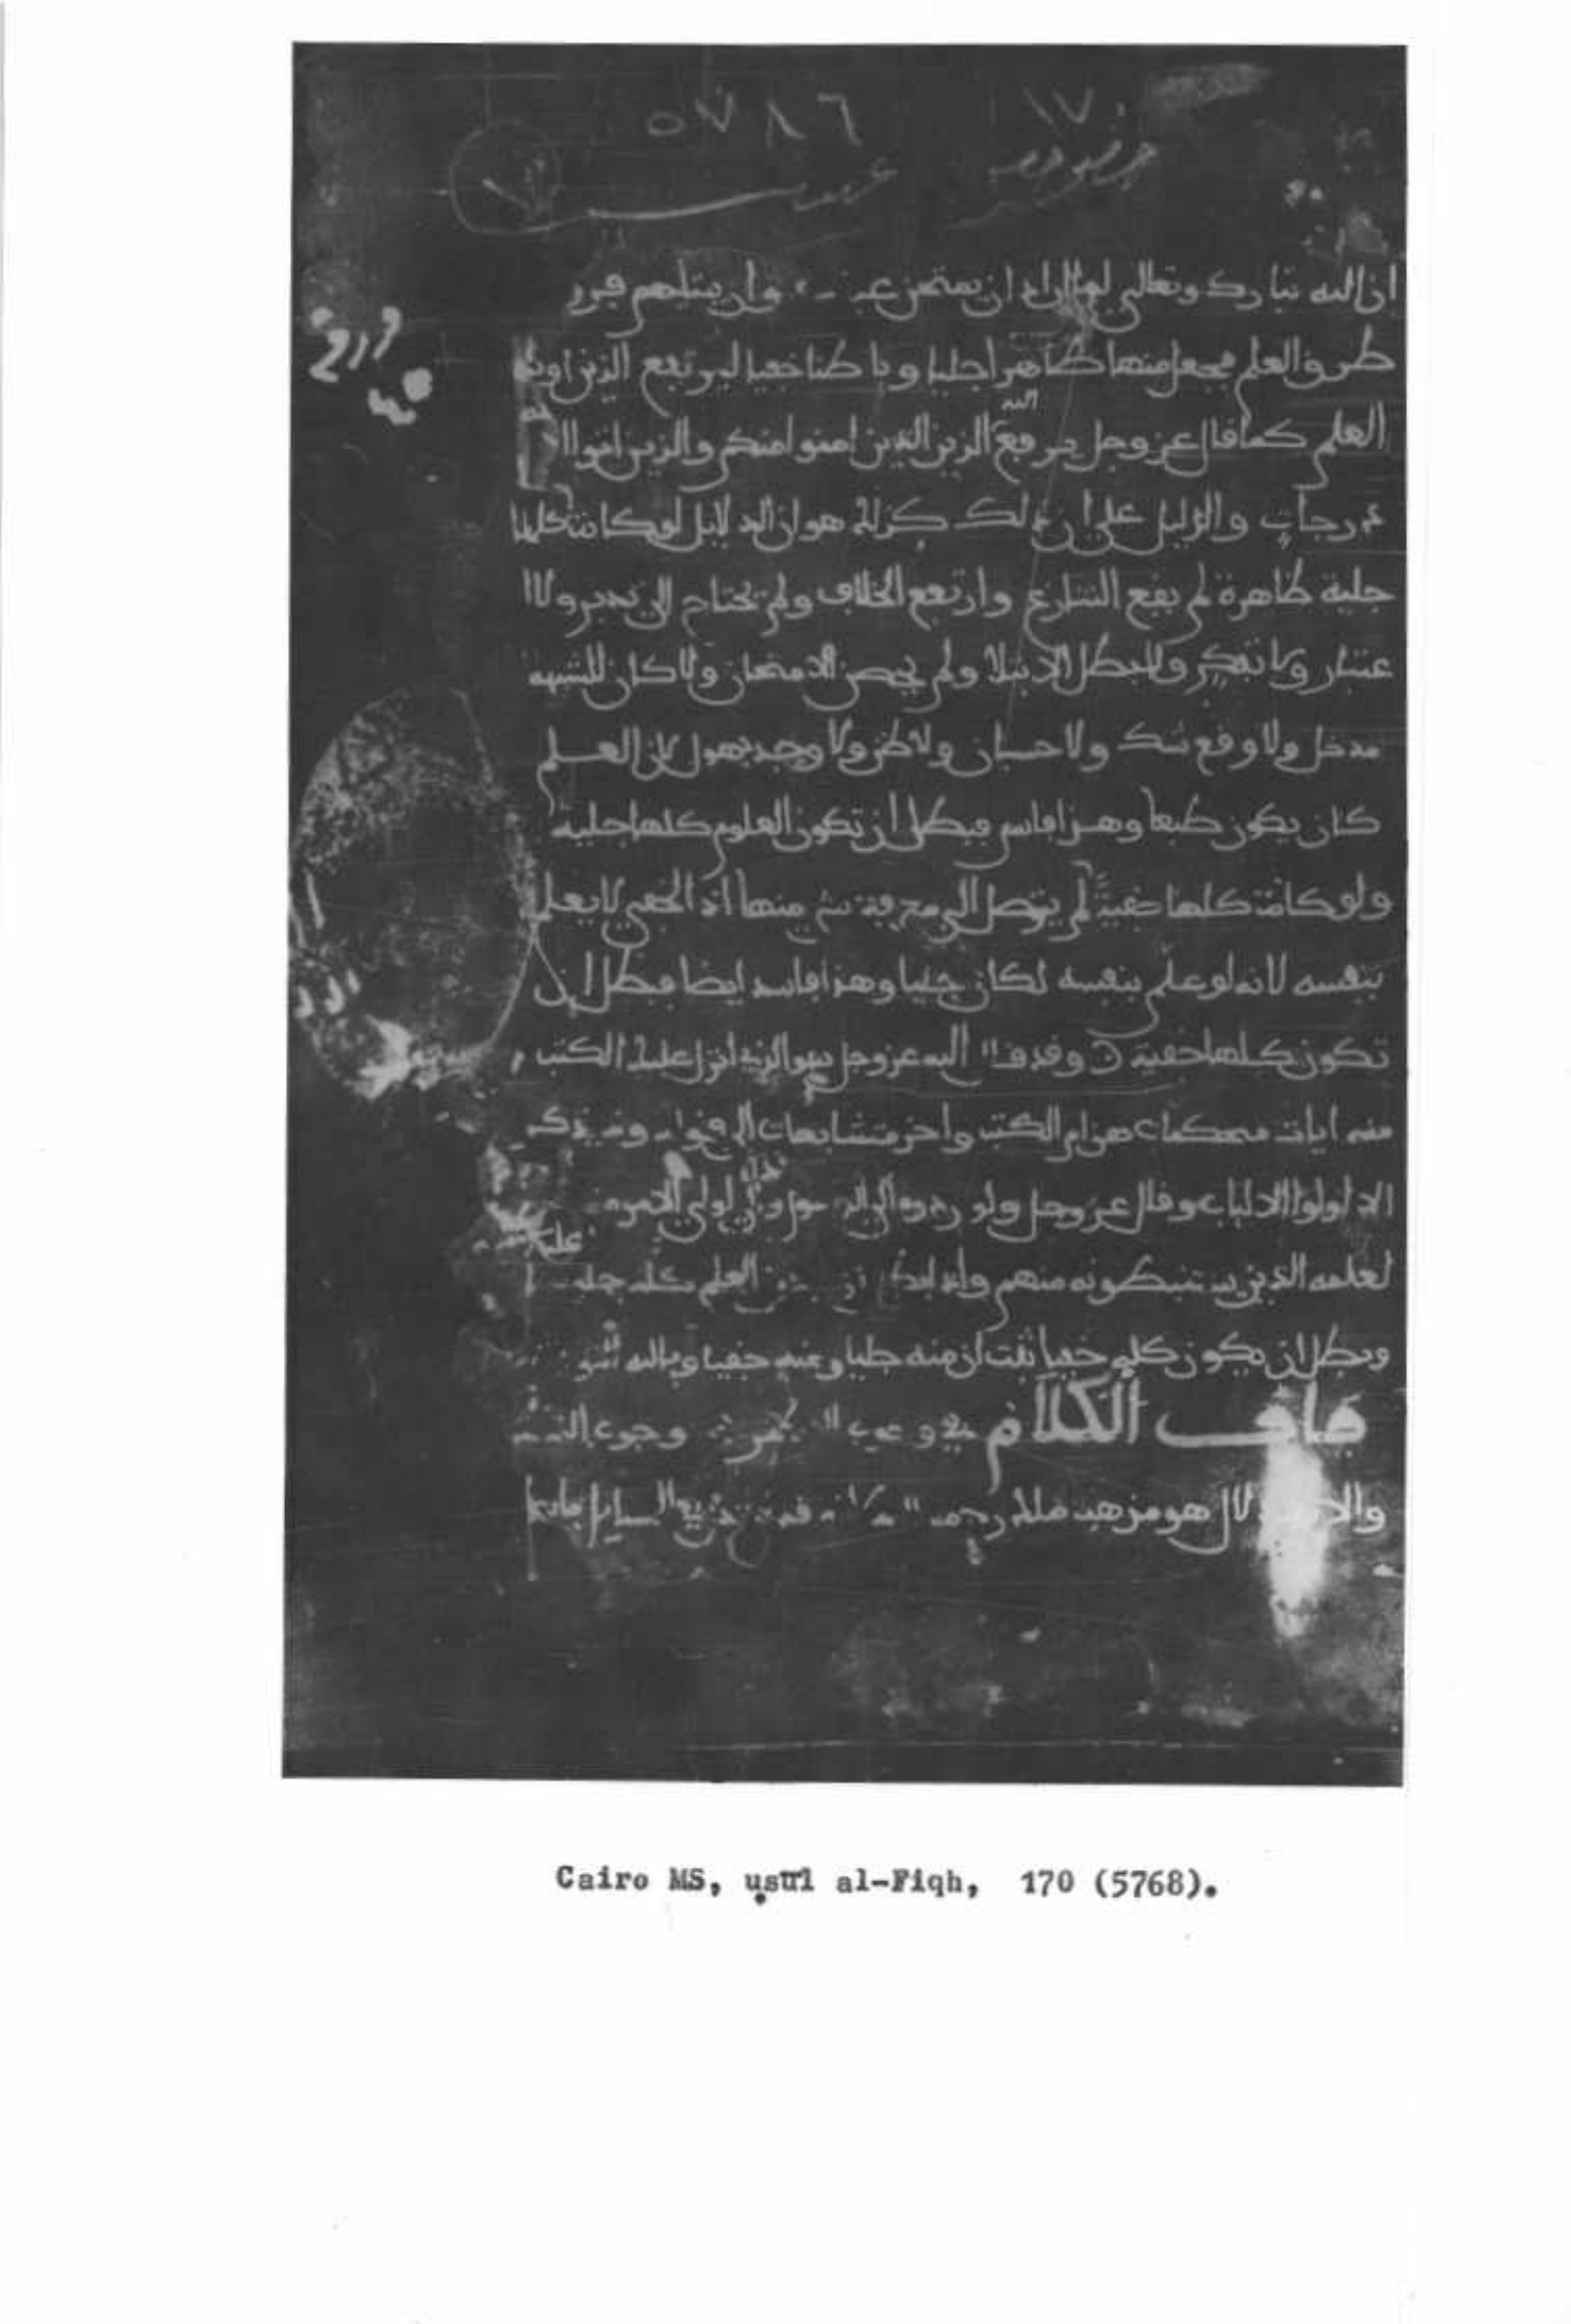 ٥٧٨٦ ١٧٠
ان الله تبارك وتعالى لما اراد ان يمتحن وان يبتليهم فرق
طرق العلم فجعل منها ظاهرا جليا وباطنا خفيا ليرتفع الذين اوتوا
العلم كما قال عز وجل يرفع الله الذين امنوا منكم والذين اتوا ا
درجات والدليل على ان ذلك كذلك هو ان الدلايل لو كانت كلها
جلية ظاهرة لم يقع التنازع وارتفع الخلاف ولم يحتاج الى تدبر ولا ا
عتبار ولا تفكر ولبطل الابتلا ولم يحصل الامتحان ولا كان للشبهة
مدخل ولا وقع شك ولا حسبان ولا ظن ولا وجد جهول لان العلم
كان يكون طبعا وهذا فاسد فبطل ان تكون العلوم كلها جلية
ولو كانت كلها خفية لم يتوصل الى معرفة شي منها اذ الخفي لا يعلم
بنفسه لانه لو علم بنفسه لكان جليا وهذا فاسد ايضا فبطل ان
تكون كلها خفية وقد قال الله عز وجل هو الذي انزل عليك الكتب
منه ايات محكمات هن ام الكتب واخر متشابهات الى قوله وما يذكر
الا اولوا الالباب وقال عز وجل ولو ردوه الى الرسول والى اولي الامر منهم
لعلمه الذين يستنبطونه منهم العلم كله جليا
وبطل ان يكون كله خفيا ثبت ان منه جليا ومنه خفيا وبالله
باب الكلام في وجوب
والاستدلال هو مذهب ملك رحمه الله
Cairo MS, uṣūl al-Fiqh, 170 (5768).